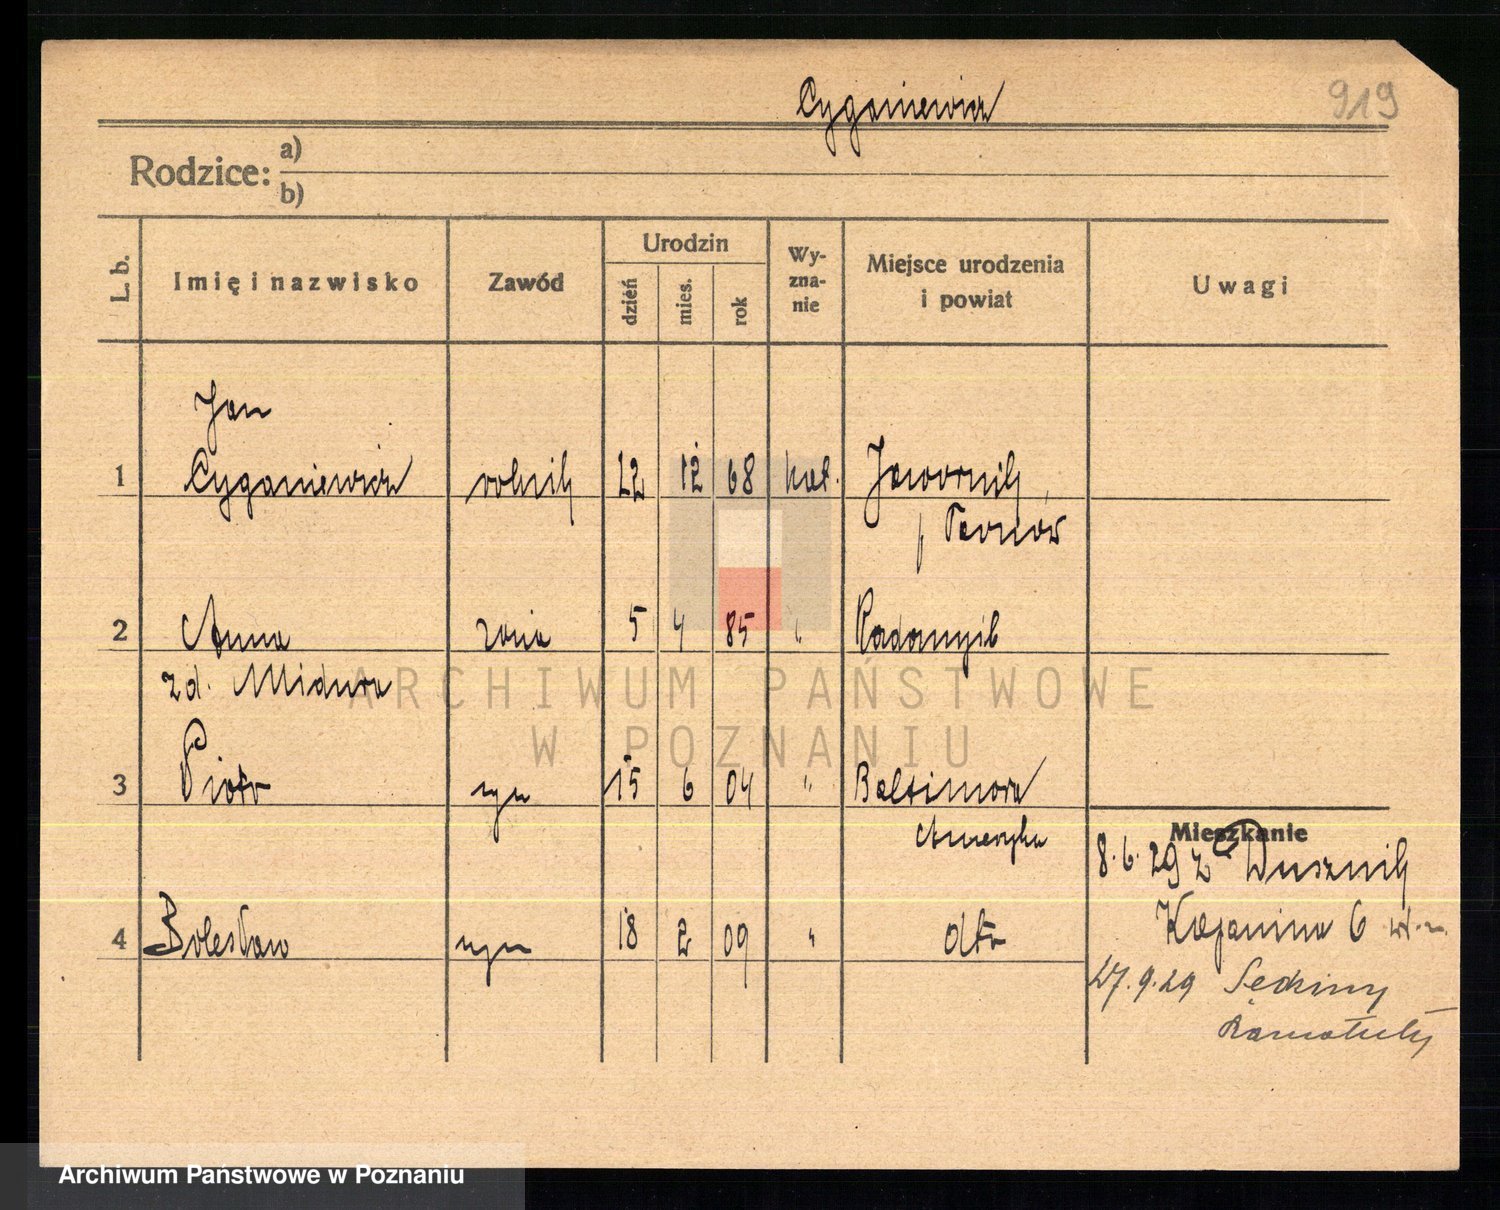 Cyganiewicz
919
Rodzice: a)
b)
L. b. Imię i nazwisko Zawód Urodzin dzień mies. rok Wy-zna-nie Miejsce urodzenia i powiat Uwagi
Jan
1 Cyganiewicz rolnik 22 12 68 kat. Jawornik
p Tarnów
2 Anna żona 5 4 85 " Radomyśl
zd. Midura
3 Piotr syn 15 6 04 " Baltimora
Ameryka
4 Bolesław syn 18 2 09 " dtto
Mieszkanie
8.6.29 z Dusznik
6
27.9.29 Sędziny
Szamotuły
ARCHIWUM PAŃSTWOWE
W POZNANIU
Archiwum Państwowe w Poznaniu